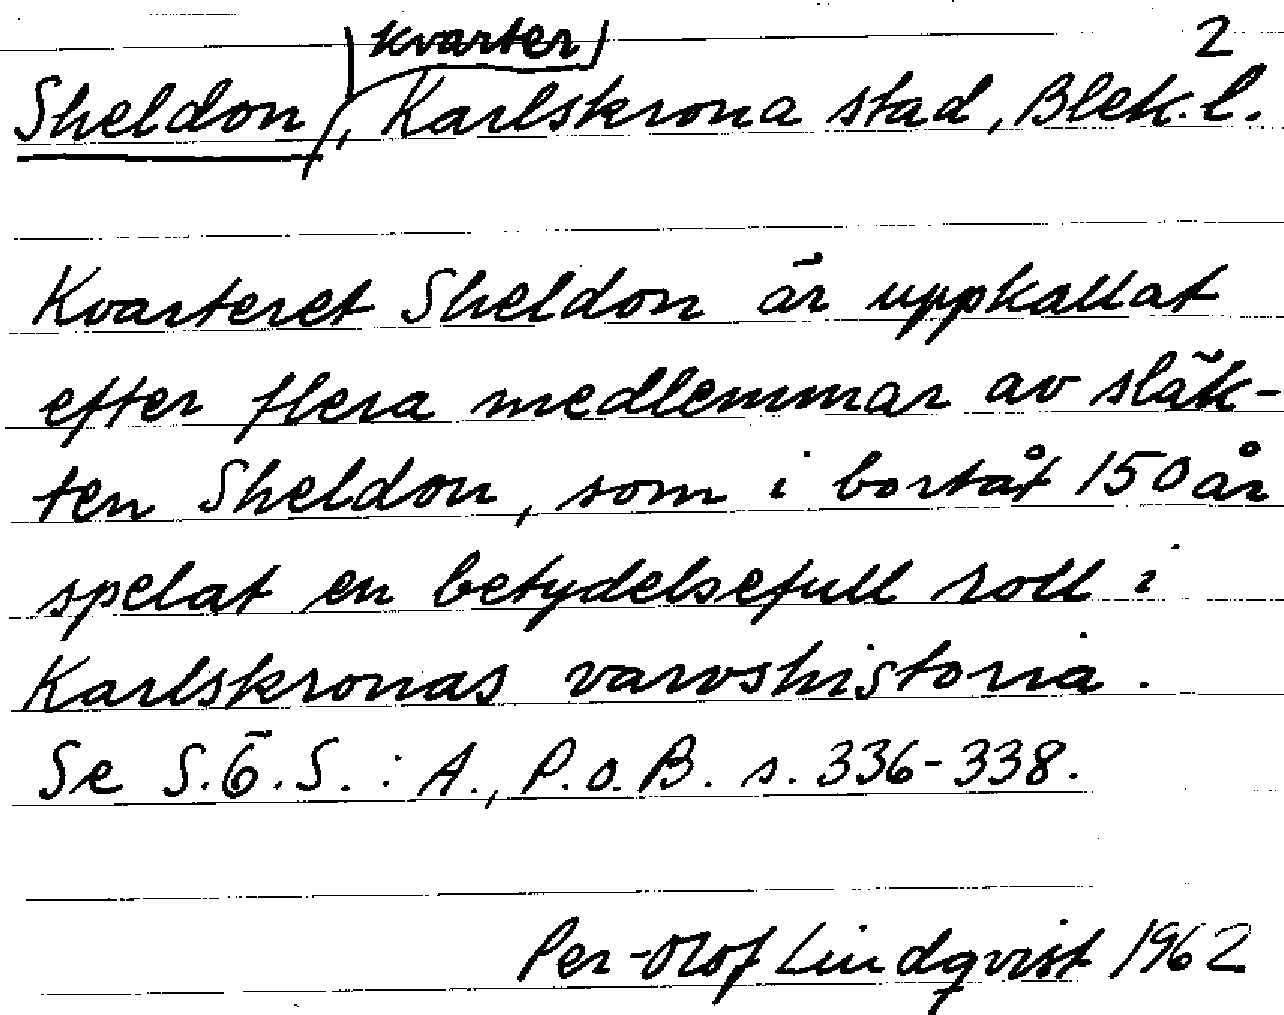 kvarter 2
Sheldon, Karlskrona stad, Blek.l.
Kvarteret Sheldon är uppkallat
efter flera medlemmar av släk-
ten Sheldon, som i bortåt 150 år
spelat en betydelsefull roll i
Karlskronas varvshistoria.
Se S.Ö.S.: A., P.o.B. s. 336-338.
Per-Olof Lindqvist 1962